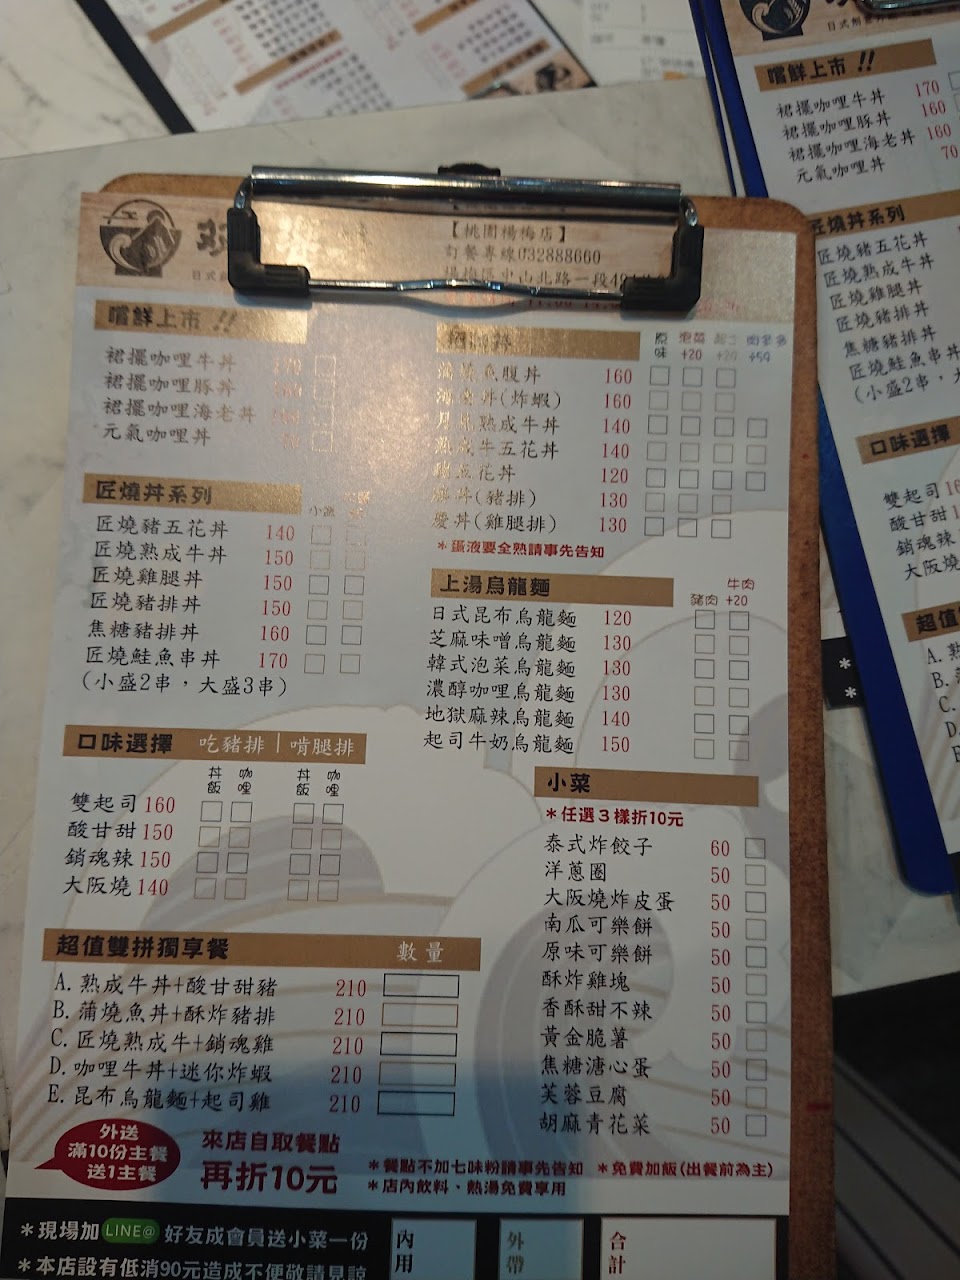 【桃園楊梅店】
訂餐專線032888660
嚐鮮上市 !!
裙擺咖哩牛丼
裙擺咖哩豚丼
裙擺咖哩海老丼
元氣咖哩丼
匠燒丼系列
小盛
匠燒豬五花丼 140
匠燒熟成牛丼 150
匠燒雞腿丼 150
匠燒豬排丼 150
焦糖豬排丼 160
匠燒鮭魚串丼 170
(小盛2串，大盛3串)
口味選擇 吃豬排 | 啃腿排
丼飯 咖哩 丼飯 咖哩
雙起司 160
酸甘甜 150
銷魂辣 150
大阪燒 140
超值雙拼獨享餐 數量
A. 熟成牛丼+酸甘甜豬 210
B. 蒲燒魚丼+酥炸豬排 210
C. 匠燒熟成牛+銷魂雞 210
D. 咖哩牛丼+迷你炸蝦 210
E. 昆布烏龍麵+起司雞 210
原味 泡菜+20
魚腹丼 160
丼(炸蝦) 160
月見熟成牛丼 140
熟成牛五花丼 140
五花丼 120
丼(豬排) 130
慶丼(雞腿排) 130
*蛋液要全熟請事先告知
上湯烏龍麵 豬肉 牛肉+20
日式昆布烏龍麵 120
芝麻味噌烏龍麵 130
韓式泡菜烏龍麵 130
濃醇咖哩烏龍麵 130
地獄麻辣烏龍麵 140
起司牛奶烏龍麵 150
小菜
*任選3樣折10元
泰式炸餃子 60
洋蔥圈 50
大阪燒炸皮蛋 50
南瓜可樂餅 50
原味可樂餅 50
酥炸雞塊 50
香酥甜不辣 50
黃金脆薯 50
焦糖溏心蛋 50
芙蓉豆腐 50
胡麻青花菜 50
外送
滿10份主餐
送1主餐
來店自取餐點
再折10元
*餐點不加七味粉請事先告知 *免費加飯(出餐前為主)
*店內飲料、熱湯免費享用
*現場加 LINE@ 好友成會員送小菜一份
*本店設有低消90元造成不便敬請見諒
內用
外帶
合計
嚐鮮上市 !!
裙擺咖哩牛丼 170
裙擺咖哩豚丼 160
裙擺咖哩海老丼 160
元氣咖哩丼 70
匠燒丼系列
匠燒豬五花丼
匠燒熟成牛丼
匠燒雞腿丼
匠燒豬排丼
焦糖豬排丼
匠燒鮭魚串丼
(小盛2串，大
口味選擇
雙起司
酸甘甜
銷魂辣
大阪燒
超值
A.
B.
C.
D.